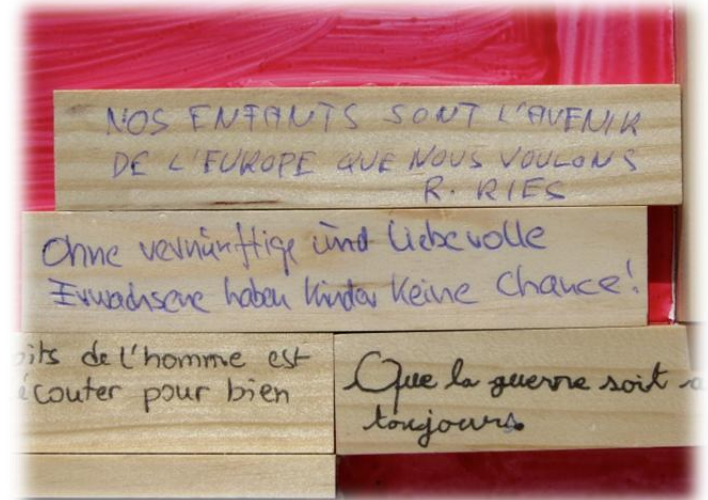 NOS ENFANTS SONT L'AVENIR
DE L'EUROPE QUE NOUS VOULONS
R. RIES
Ohne vernünftige und liebevolle
Erwachsene haben Kinder keine Chance!
its de l'homme est
écouter pour bien
Que la guerre soit
toujours